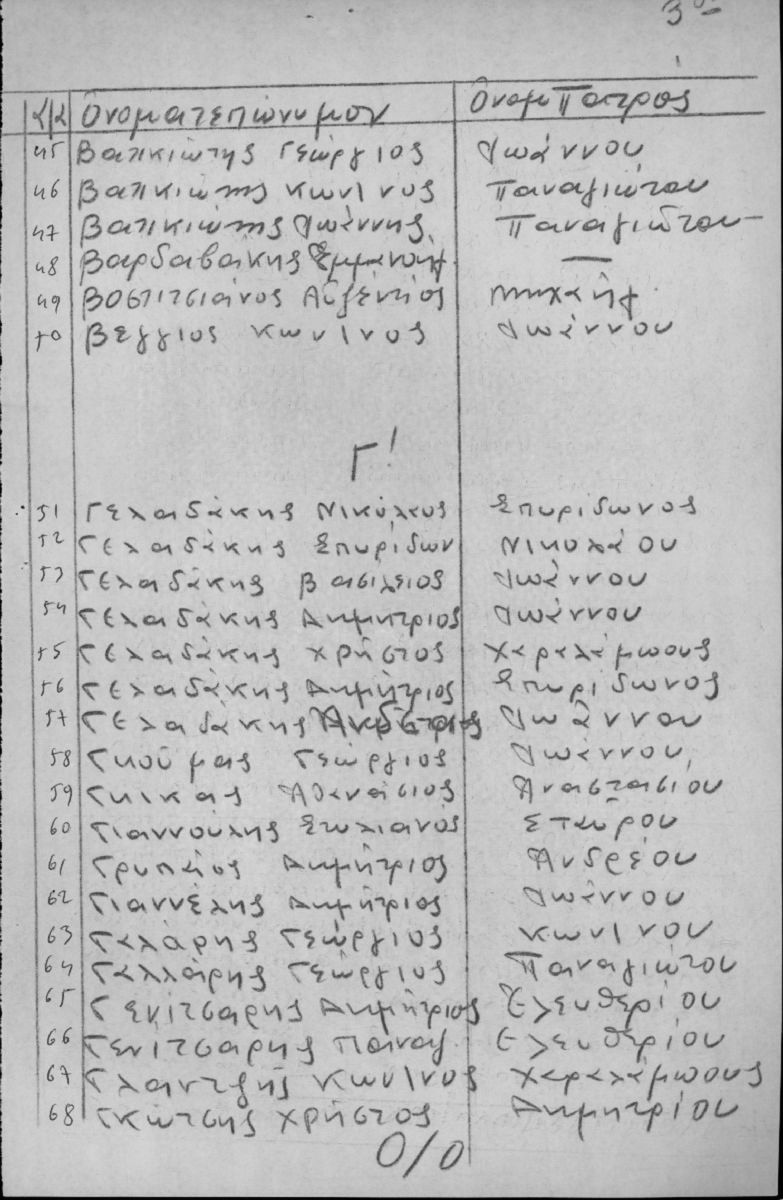 3ον
Α/Α Ονοματεπώνυμον Ονομ Πατρος
45 Βατικιώτης Γεώργιος Ιωάννου
46 Βατικιώτης Κων/νος Παναγιώτου
47 Βατικιώτης Ιωάννης Παναγιώτου
48 Βαρδαβάκης Εμμανουήλ —
49 Βοστιτσιάνος Αυξέντιος Μιχαήλ
50 Βέγγιος Κων/νος Ιωάννου
Γ!
51 Γελαδάκης Νικόλαος Σπυρίδωνος
52 Γελαδάκης Σπυρίδων Νικολάου
53 Γελαδάκης Βασίλειος Ιωάννου
54 Γελαδάκης Δημήτριος Ιωάννου
55 Γελαδάκης Χρήστος Χαραλάμπους
56 Γελαδάκης Δημήτριος Σπυρίδωνος
57 Γελαδάκης Ιωάννου
58 Γκούμας Γεώργιος Ιωάννου
59 Γκίκας Αθανάσιος Αναστασίου
60 Γιαννούλης Στυλιανός Σταύρου
61 Γρυπαίος Δημήτριος Ανδρέου
62 Γιαννέλης Δημήτριος Ιωάννου
63 Γαλάρης Γεώργιος Κων/νου
64 Γαλλάρης Γεώργιος Παναγιώτου
65 Γενίτσαρης Δημήτριος Ελευθερίου
66 Γενίτσαρης Παναγ. Ελευθερίου
67 Γλαντζής Κων/νος Χαραλάμπους
68 Γκώτσης Χρήστος Δημητρίου
0/0